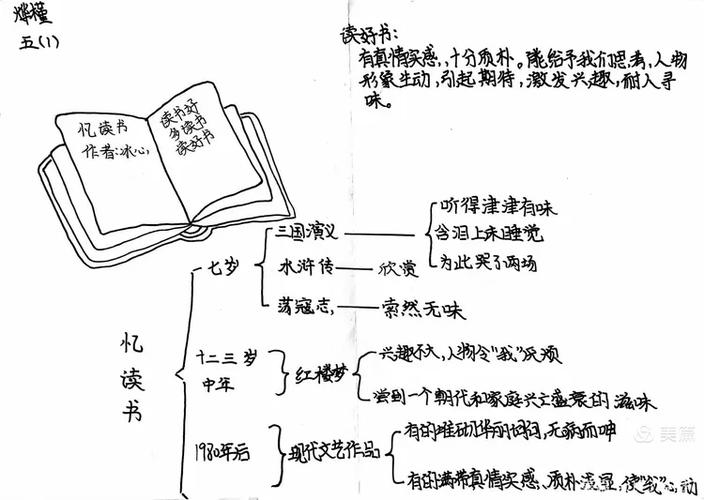 烨槿
五(1)
读好书:
有真情实感,十分质朴。能给予我们思考,人物
形象生动,引起期待,激发兴趣,耐人寻
味。
忆读书
作者:冰心
读书好
多读书
读好书
忆读书
七岁
三国演义
听得津津有味
含泪上床睡觉
为此哭了两场
水浒传
欣赏
荡寇志
索然无味
十二三岁
中年
红楼梦
兴趣不大,人物令"我"厌烦
尝到一个朝代和家庭兴亡盛衰的滋味
1980年后
现代文艺作品
有的堆砌华丽词句,无病而呻
有的满带真情实感、质朴浅显,使"我"心动
美篇